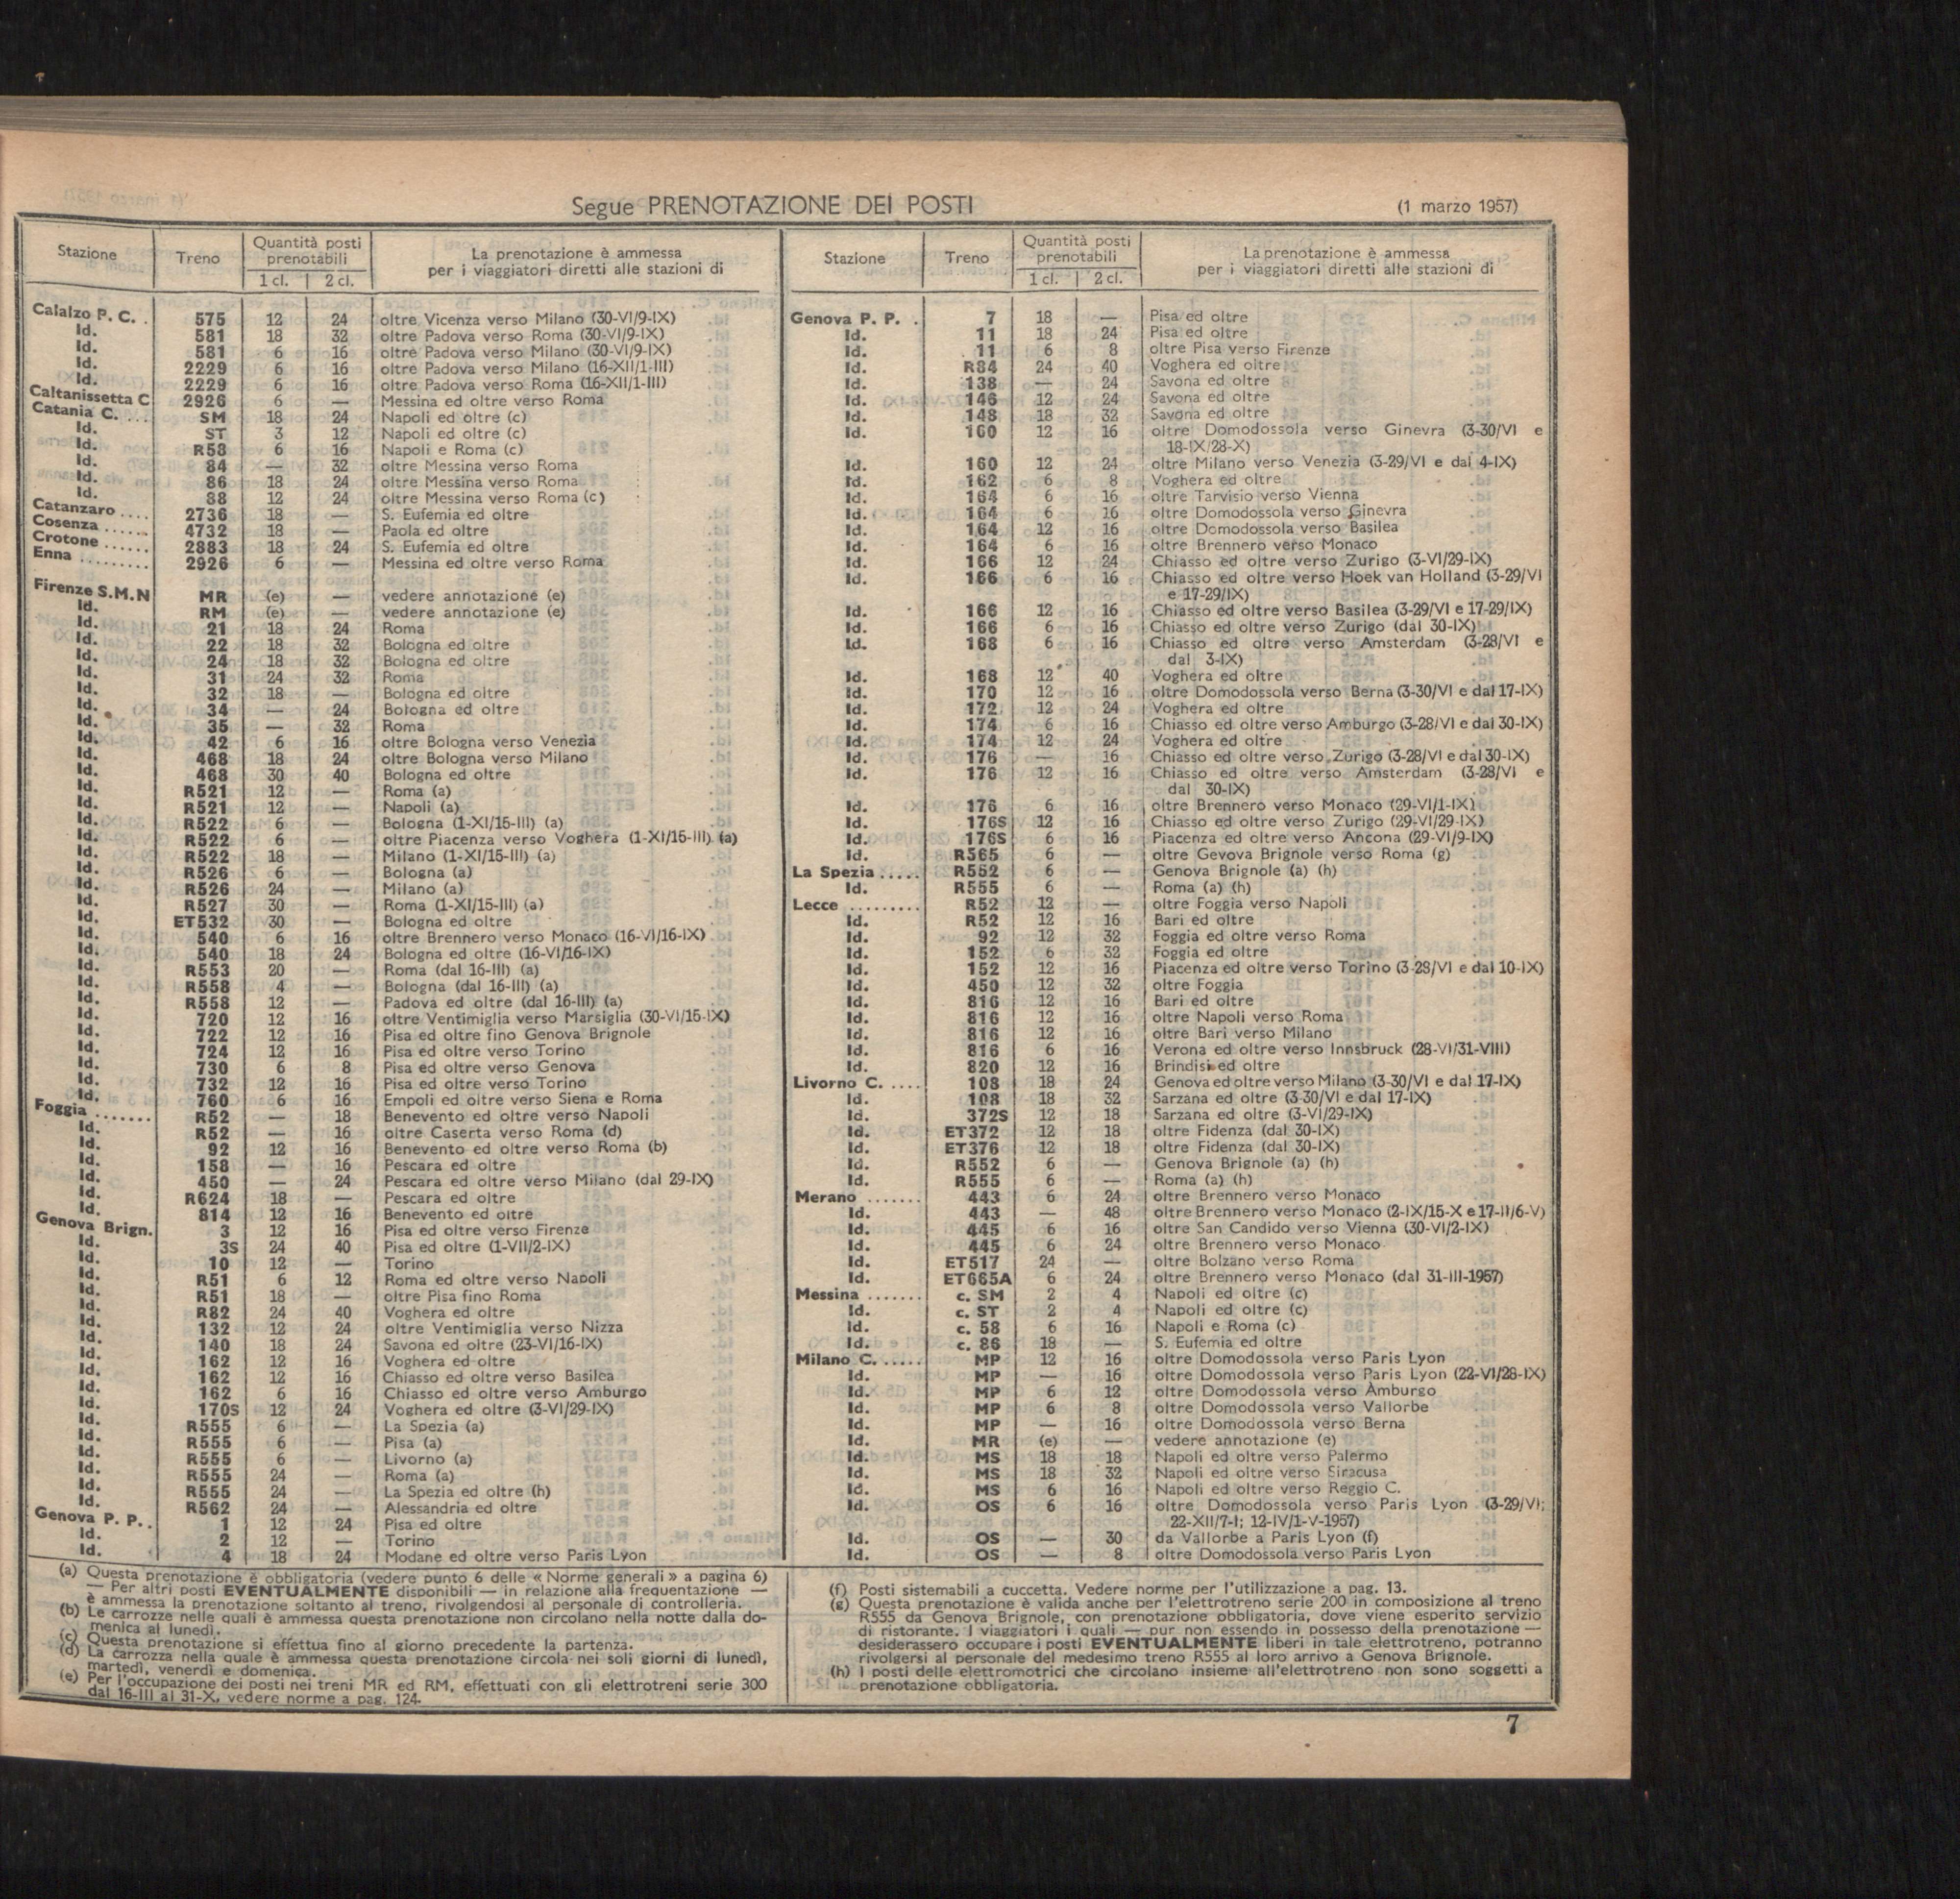 Segue PRENOTAZIONE DEI POSTI
(1 marzo 1957)
Stazione Treno Quantità posti prenotabili 1 cl. 2 cl. La prenotazione è ammessa per i viaggiatori diretti alle stazioni di
Calalzo P. C. . 575 12 24 oltre Vicenza verso Milano (30-VI/9-IX)
Id. 581 18 32 oltre Padova verso Roma (30-VI/9-IX)
Id. 581 6 16 oltre Padova verso Milano (30-VI/9-IX)
Id. 2229 6 16 oltre Padova verso Milano (16-XII/1-III)
Id. 2229 6 16 oltre Padova verso Roma (16-XII/1-III)
Caltanissetta C 2926 6 — Messina ed oltre verso Roma
Catania C. ... SM 18 24 Napoli ed oltre (c)
Id. ST 3 12 Napoli ed oltre (c)
Id. R58 6 16 Napoli e Roma (c)
Id. 84 — 32 oltre Messina verso Roma
Id. 86 18 24 oltre Messina verso Roma
Id. 88 12 24 oltre Messina verso Roma (c)
Catanzaro .... 2736 18 — S. Eufemia ed oltre
Cosenza ...... 4732 18 — Paola ed oltre
Crotone ...... 2883 18 24 S. Eufemia ed oltre
Enna ......... 2926 6 — Messina ed oltre verso Roma
Firenze S.M.N MR (e) — vedere annotazione (e)
Id. RM (e) — vedere annotazione (e)
Id. 21 18 24 Roma
Id. 22 18 32 Bologna ed oltre
Id. 24 18 32 Bologna ed oltre
Id. 31 24 32 Roma
Id. 32 18 — Bologna ed oltre
Id. 34 — 24 Bologna ed oltre
Id. 35 — 32 Roma
Id. 42 6 16 oltre Bologna verso Venezia
Id. 468 18 24 oltre Bologna verso Milano
Id. 468 30 40 Bologna ed oltre
Id. R521 12 — Roma (a)
Id. R521 12 — Napoli (a)
Id. R522 6 — Bologna (1-XI/15-III) (a)
Id. R522 6 — oltre Piacenza verso Voghera (1-XI/15-III) (a)
Id. R522 18 — Milano (1-XI/15-III) (a)
Id. R526 6 — Bologna (a)
Id. R526 24 — Milano (a)
Id. R527 30 — Roma (1-XI/15-III) (a)
Id. ET532 30 — Bologna ed oltre
Id. 540 6 16 oltre Brennero verso Monaco (16-VI/16-IX)
Id. 540 18 24 Bologna ed oltre (16-VI/16-IX)
Id. R553 20 — Roma (dal 16-III) (a)
Id. R558 4 — Bologna (dal 16-III) (a)
Id. R558 12 — Padova ed oltre (dal 16-III) (a)
Id. 720 12 16 oltre Ventimiglia verso Marsiglia (30-VI/15-IX)
Id. 722 12 16 Pisa ed oltre fino Genova Brignole
Id. 724 12 16 Pisa ed oltre verso Torino
Id. 730 6 8 Pisa ed oltre verso Genova
Id. 732 12 16 Pisa ed oltre verso Torino
Id. 760 6 16 Empoli ed oltre verso Siena e Roma
Foggia ....... R52 — 18 Benevento ed oltre verso Napoli
Id. R52 — 16 oltre Caserta verso Roma (d)
Id. 92 12 16 Benevento ed oltre verso Roma (b)
Id. 158 — 16 Pescara ed oltre
Id. 450 — 24 Pescara ed oltre verso Milano (dal 29-IX)
Id. R624 18 — Pescara ed oltre
Id. 814 12 16 Benevento ed oltre
Genova Brign. 3 12 16 Pisa ed oltre verso Firenze
Id. 3S 24 40 Pisa ed oltre (1-VII/2-IX)
Id. 10 12 — Torino
Id. R51 6 12 Roma ed oltre verso Napoli
Id. R51 18 — oltre Pisa fino Roma
Id. R82 24 40 Voghera ed oltre
Id. 132 12 24 oltre Ventimiglia verso Nizza
Id. 140 18 24 Savona ed oltre (23-VI/16-IX)
Id. 162 12 16 Voghera ed oltre
Id. 162 12 16 Chiasso ed oltre verso Basilea
Id. 162 6 16 Chiasso ed oltre verso Amburgo
Id. 170S 12 24 Voghera ed oltre (3-VI/29-IX)
Id. R555 6 — La Spezia (a)
Id. R555 6 — Pisa (a)
Id. R555 6 — Livorno (a)
Id. R555 24 — Roma (a)
Id. R555 24 — La Spezia ed oltre (h)
Id. R562 24 — Alessandria ed oltre
Genova P. P. . 1 12 24 Pisa ed oltre
Id. 2 12 — Torino
Id. 4 18 24 Modane ed oltre verso Paris Lyon
(a) Questa prenotazione è obbligatoria (vedere punto 6 delle « Norme generali » a pagina 6)
— Per altri posti EVENTUALMENTE disponibili — in relazione alla frequentazione —
è ammessa la prenotazione soltanto al treno, rivolgendosi al personale di controlleria.
(b) Le carrozze nelle quali è ammessa questa prenotazione non circolano nella notte dalla do-
menica al lunedì.
(c) Questa prenotazione si effettua fino al giorno precedente la partenza.
(d) La carrozza nella quale è ammessa questa prenotazione circola nei soli giorni di lunedì,
martedì, venerdì e domenica.
(e) Per l'occupazione dei posti nei treni MR ed RM, effettuati con gli elettrotreni serie 300
dal 16-III al 31-X, vedere norme a pag. 124.
Stazione Treno Quantità posti prenotabili 1 cl. 2 cl. La prenotazione è ammessa per i viaggiatori diretti alle stazioni di
Genova P. P. . 7 18 — Pisa ed oltre
Id. 11 18 24 Pisa ed oltre
Id. 11 6 8 oltre Pisa verso Firenze
Id. R84 24 40 Voghera ed oltre
Id. 138 — 24 Savona ed oltre
Id. 146 12 24 Savona ed oltre
Id. 148 18 32 Savona ed oltre
Id. 160 12 16 oltre Domodossola verso Ginevra (3-30/VI e
18-IX/28-X)
Id. 160 12 24 oltre Milano verso Venezia (3-29/VI e dal 4-IX)
Id. 162 6 8 Voghera ed oltre
Id. 164 6 16 oltre Tarvisio verso Vienna
Id. 164 6 16 oltre Domodossola verso Ginevra
Id. 164 12 16 oltre Domodossola verso Basilea
Id. 164 6 16 oltre Brennero verso Monaco
Id. 166 12 24 Chiasso ed oltre verso Zurigo (3-VI/29-IX)
Id. 166 6 16 Chiasso ed oltre verso Hoek van Holland (3-29/VI
e 17-29/IX)
Id. 166 12 16 Chiasso ed oltre verso Basilea (3-29/VI e 17-29/IX)
Id. 166 6 16 Chiasso ed oltre verso Zurigo (dal 30-IX)
Id. 168 6 16 Chiasso ed oltre verso Amsterdam (3-28/VI e
dal 3-IX)
Id. 168 12 40 Voghera ed oltre
Id. 170 12 16 oltre Domodossola verso Berna (3-30/VI e dal 17-IX)
Id. 172 12 24 Voghera ed oltre
Id. 174 6 16 Chiasso ed oltre verso Amburgo (3-28/VI e dal 30-IX)
Id. 174 12 24 Voghera ed oltre
Id. 176 — 16 Chiasso ed oltre verso Zurigo (3-28/VI e dal 30-IX)
Id. 176 12 16 Chiasso ed oltre verso Amsterdam (3-28/VI e
dal 30-IX)
Id. 176 6 16 oltre Brennero verso Monaco (29-VI/1-IX)
Id. 176S 12 16 Chiasso ed oltre verso Zurigo (29-VI/29-IX)
Id. 176S 6 16 Piacenza ed oltre verso Ancona (29-VI/9-IX)
Id. R565 6 — oltre Gevova Brignole verso Roma (g)
La Spezia ..... R552 6 — Genova Brignole (a) (h)
Id. R555 6 — Roma (a) (h)
Lecce ......... R52 12 — oltre Foggia verso Napoli
Id. R52 12 16 Bari ed oltre
Id. 92 12 32 Foggia ed oltre verso Roma
Id. 152 6 32 Foggia ed oltre
Id. 152 12 16 Piacenza ed oltre verso Torino (3-28/VI e dal 10-IX)
Id. 450 12 32 oltre Foggia
Id. 816 12 16 Bari ed oltre
Id. 816 12 16 oltre Napoli verso Roma
Id. 816 12 16 oltre Bari verso Milano
Id. 816 6 16 Verona ed oltre verso Innsbruck (28-VI/31-VIII)
Id. 820 12 16 Brindisi ed oltre
Livorno C. .... 108 18 24 Genova ed oltre verso Milano (3-30/VI e dal 17-IX)
Id. 108 18 32 Sarzana ed oltre (3-30/VI e dal 17-IX)
Id. 372S 12 18 Sarzana ed oltre (3-VI/29-IX)
Id. ET372 12 18 oltre Fidenza (dal 30-IX)
Id. ET376 12 18 oltre Fidenza (dal 30-IX)
Id. R552 6 — Genova Brignole (a) (h)
Id. R555 6 — Roma (a) (h)
Merano ....... 443 6 24 oltre Brennero verso Monaco
Id. 443 — 48 oltre Brennero verso Monaco (2-IX/15-X e 17-II/6-V)
Id. 445 6 16 oltre San Candido verso Vienna (30-VI/2-IX)
Id. 445 6 24 oltre Brennero verso Monaco
Id. ET517 24 — oltre Bolzano verso Roma
Id. ET665A 6 24 oltre Brennero verso Monaco (dal 31-III-1957)
Messina ....... c. SM 2 4 Napoli ed oltre (c)
Id. c. ST 2 4 Napoli ed oltre (c)
Id. c. 58 6 16 Napoli e Roma (c)
Id. c. 86 18 — S. Eufemia ed oltre
Milano C. ..... MP 12 16 oltre Domodossola verso Paris Lyon
Id. MP — 16 oltre Domodossola verso Paris Lyon (22-VI/28-IX)
Id. MP 6 12 oltre Domodossola verso Amburgo
Id. MP 6 8 oltre Domodossola verso Vallorbe
Id. MP — 16 oltre Domodossola verso Berna
Id. MR (e) — vedere annotazione (e)
Id. MS 18 18 Napoli ed oltre verso Palermo
Id. MS 18 32 Napoli ed oltre verso Siracusa
Id. MS 6 16 Napoli ed oltre verso Reggio C.
Id. OS 6 16 oltre Domodossola verso Paris Lyon (3-29/VI;
22-XII/7-I; 12-IV/1-V-1957)
Id. OS — 30 da Vallorbe a Paris Lyon (f)
Id. OS — 8 oltre Domodossola verso Paris Lyon
(f) Posti sistemabili a cuccetta. Vedere norme per l'utilizzazione a pag. 13.
(g) Questa prenotazione è valida anche per l'elettrotreno serie 200 in composizione al treno
R555 da Genova Brignole, con prenotazione obbligatoria, dove viene esperito servizio
di ristorante. I viaggiatori i quali — pur non essendo in possesso della prenotazione —
desiderassero occupare i posti EVENTUALMENTE liberi in tale elettrotreno, potranno
rivolgersi al personale del medesimo treno R555 al loro arrivo a Genova Brignole.
(h) I posti delle elettromotrici che circolano insieme all'elettrotreno non sono soggetti a
prenotazione obbligatoria.
7